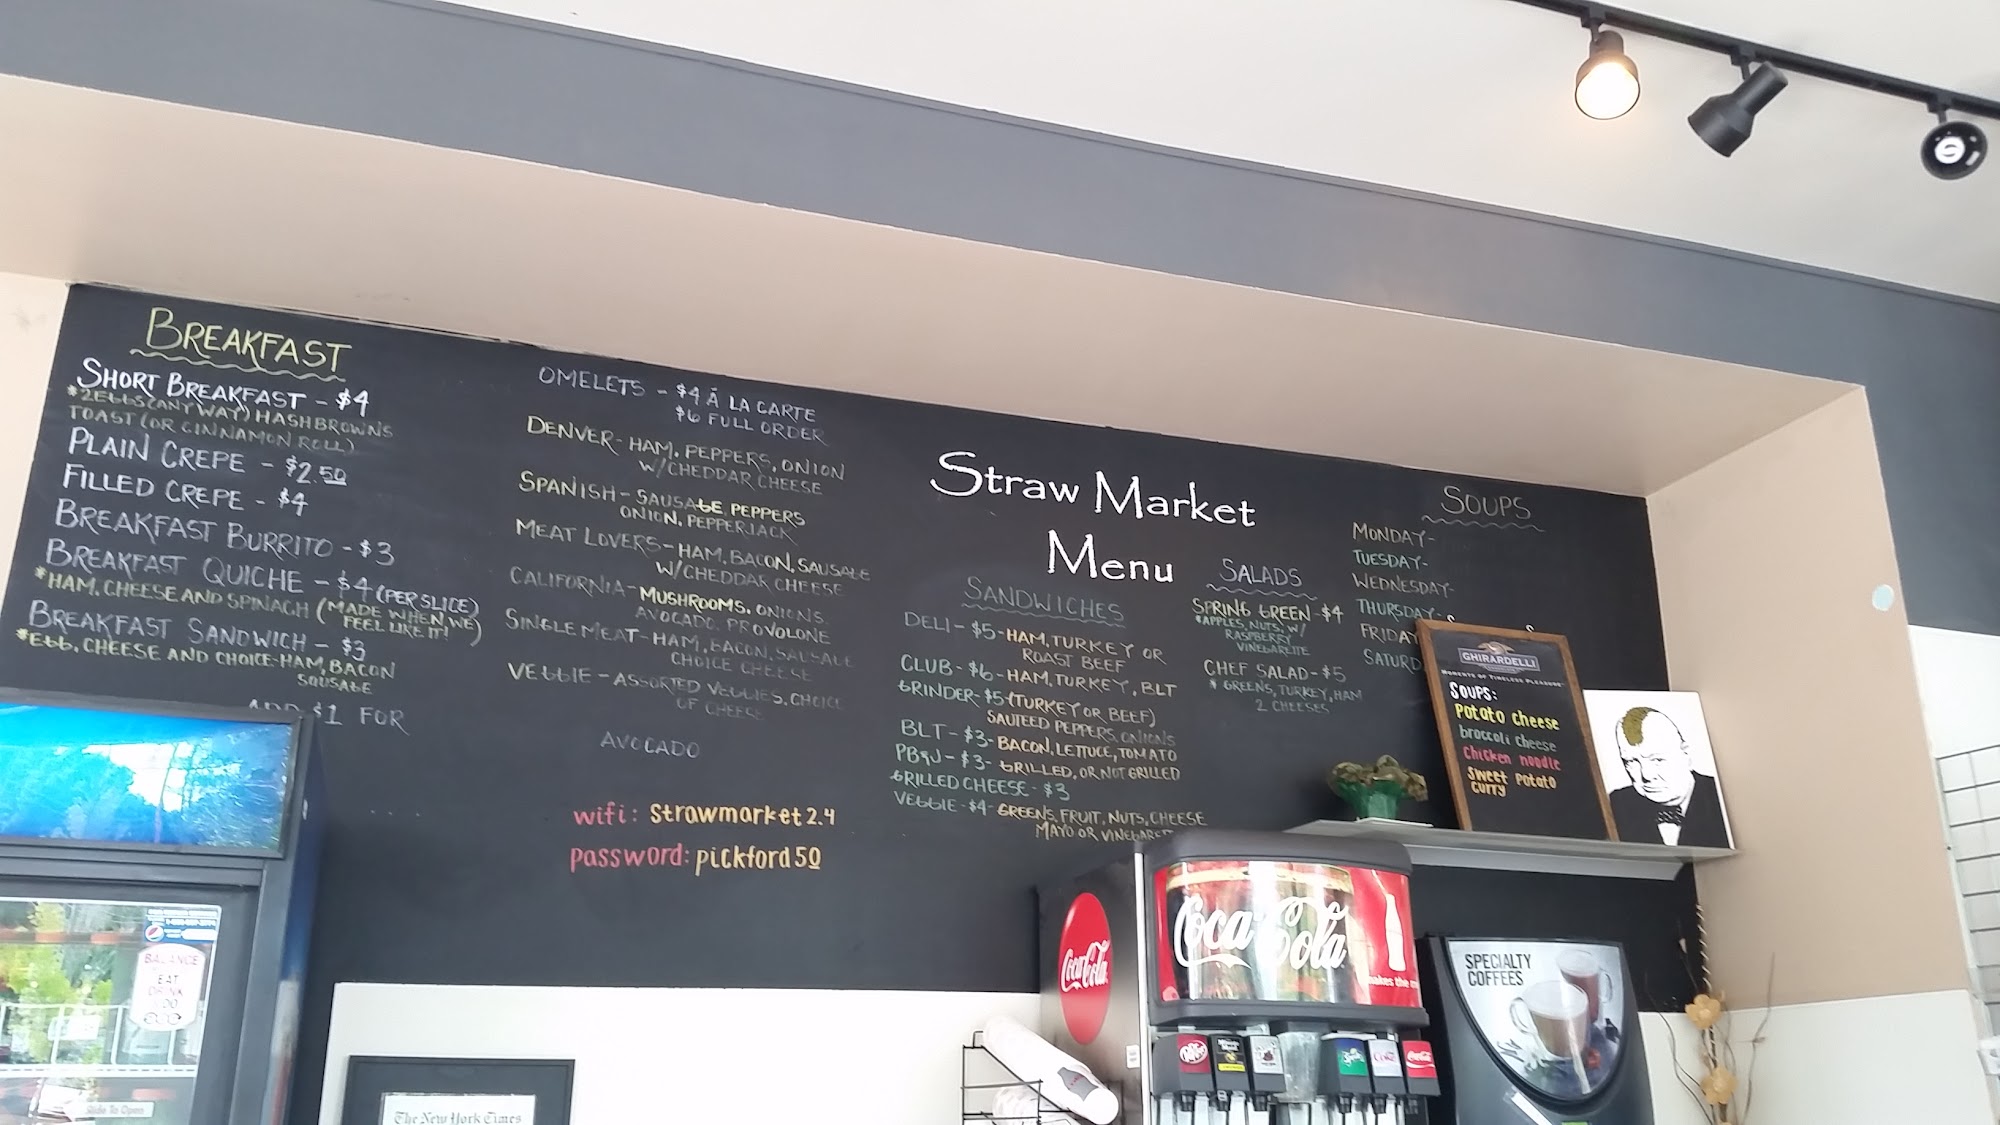 BREAKFAST
SHORT BREAKFAST - $4
*2EGGS (ANY WAY) HASHBROWNS
TOAST (OR CINNAMON ROLL)
PLAIN CREPE - $2.50
FILLED CREPE - $4
BREAKFAST BURRITO - $3
BREAKFAST QUICHE - $4 (PER SLICE)
*HAM, CHEESE AND SPINACH (MADE WHEN WE
FEEL LIKE IT!)
BREAKFAST SANDWICH - $3
*EGG, CHEESE AND CHOICE-HAM, BACON
SAUSAGE
ADD $1 FOR
AVOCADO
OMELETS - $4 Á LA CARTE
$6 FULL ORDER
DENVER- HAM, PEPPERS, ONION
W/CHEDDAR CHEESE
SPANISH - SAUSAGE PEPPERS
ONION, PEPPERJACK
MEAT LOVERS - HAM, BACON, SAUSAGE
W/CHEDDAR CHEESE
CALIFORNIA - MUSHROOMS, ONIONS
AVOCADO, PROVOLONE
SINGLE MEAT - HAM, BACON, SAUSAGE
CHOICE CHEESE
VEGGIE - ASSORTED VEGGIES, CHOICE
OF CHEESE
wifi: strawmarket2.4
password: pickford50
Straw Market
Menu
SANDWICHES
DELI - $5 - HAM, TURKEY OR
ROAST BEEF
CLUB - $6 - HAM, TURKEY, BLT
GRINDER - $5 (TURKEY OR BEEF)
SAUTEED PEPPERS, ONIONS
BLT - $3 - BACON, LETTUCE, TOMATO
PB&J - $3 - GRILLED, OR NOT GRILLED
GRILLED CHEESE - $3
VEGGIE - $4 - GREENS, FRUIT, NUTS, CHEESE
MAYO OR VINEGARETTE
SALADS
SPRING GREEN - $4
*APPLES, NUTS, W/
RASPBERRY
VINEGARETTE
CHEF SALAD - $5
* GREENS, TURKEY, HAM
2 CHEESES
SOUPS
MONDAY-
TUESDAY-
WEDNESDAY-
THURSDAY-
FRIDAY
SATURD
GHIRARDELLI
MOMENTS OF TIMELESS PLEASURE
SOUPS:
Potato cheese
broccoli cheese
chicken noodle
Sweet potato
curry
Coca-Cola
Coca-Cola
makes the
SPECIALTY
COFFEES
Dr Pepper
Sprite
Diet Coke
Coca-Cola
BALANCE
EAT
DRINK
Slide To Open
The New York Times